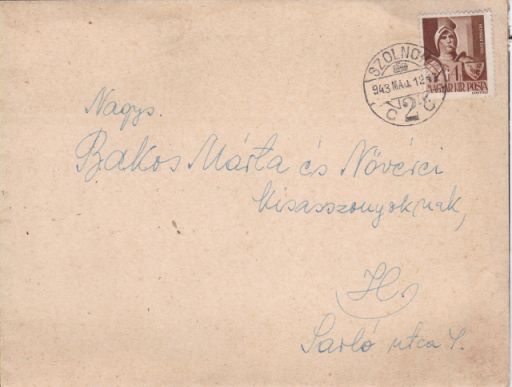 SZOLNOK
943 MÁJ. 12
2
C C
MAGYAR KIR. POSTA
Nagys.
Bakos Márta és Nővérei
kisasszonyoknak,
H.
Sarló utca 4.